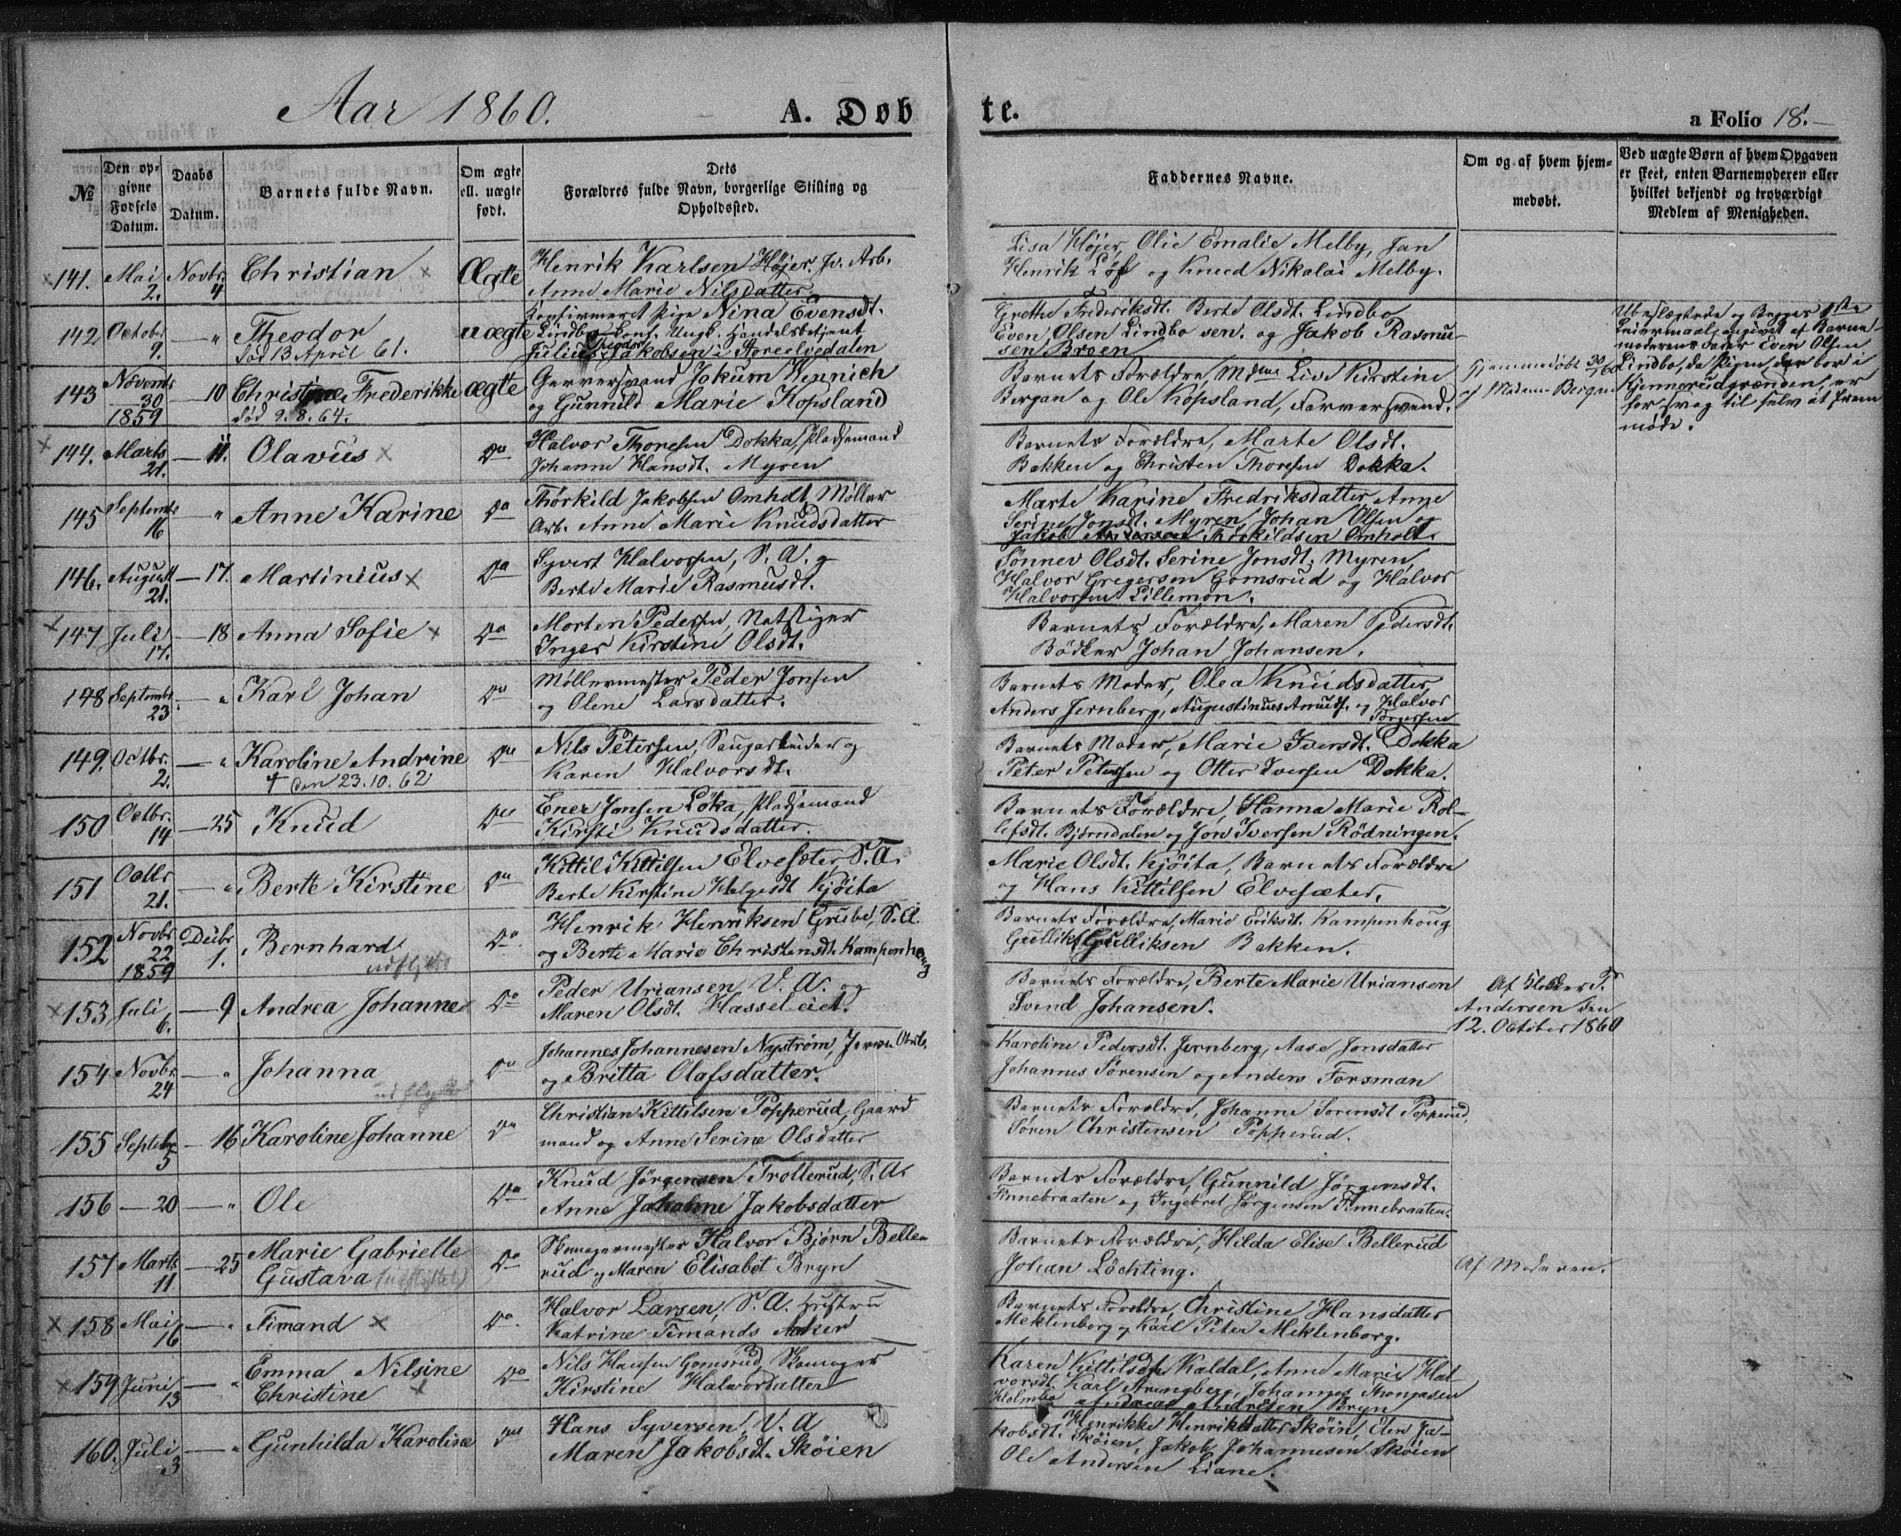 Aar 1860.
A. Døbte.
a Folio 18.
№
Den opgivne Fødsels Datum.
Daabs Datum.
Barnets fulde Navn.
Om ægte ell. uægte født.
Dets Forældres fulde Navn, borgerlige Stilling og Opholdssted.
Faddernes Navne.
Om og af hvem hjemmedøbt.
Ved uægte Børn af hvem Opgaven er skeet, enten Barnemoderen eller hvilket bekjendt og troværdigt Medlem af Menigheden.
141. Mai 2. Novbr. 4 Christian Ægte
Henrik Karlsen Højer, Jv. Arb.
Anne Marie Nilsdatter
Lisa Højer, Olie Emalie Melby, Jan
Henrik Löf og Knud Nikolai Melby.
142 October 9. — " Theodor uægte
Død 13 April 61.
Konfirmeret Pige Nina Evensdt.
Lindbo, Conf. Ungk. Handelsbetjent
Julius Theodor Jakobsen i Toreelvedalen
Grethe Frederiksdt. Berte Olsdt. Lindbo
Even Olsen Lindbo sen. og Jakob Rasmussen Broen
Ubeslægtede og Begges 1ste
Leiermaal, angivet af Barnemoderens Fader Even Olsen
Lindbo, da Pigen, der bor i
Kjennerudgrænden, er
for svag til selv at fremmøde.
143 Novemb. 30 1859 — 10 Christine Frederikke ægte
død 9.8.64.
Garversvend Jokum Hennich
og Gunnild Marie Kopsland
Barnets Forældre, Mdme Live Kirstine
Bergan og Ole Kopsland, Farversvend.
Hjemmedøbt 30/1 60
af Madam Bergan
144. Marts 21. — 11. Olavus Do
Halvor Thoresen Dokka, Pladsemand
Johanne Hansdt. Myren
Barnets Forældre, Marte Olsdt.
Bakken og Christen Thoresen Dokka.
145 Septemb. 16 — " Anne Karine Do
Thorkild Jakobsen Omholt, Møller
Arb. Anne Marie Knudsdatter
Marte Karine Fredriksdatter, Anne
Serine Jonsdt. Myren, Johan Olsen og
Jakob Andersen Thorkildsen Omholt.
146. August 21. — 17. Martinius Do
Syvert Halvorsen, S. A. og
Berte Marie Rasmusdt.
Sønnev Olsdt. Serine Jonsdt. Myren,
Halvor Gregersen Gomsrud og Halvor
Halvorsen Lillemon.
147 Juli 17. — 18 Anna Sofie Do
Morten Pedersen,
Inger Kirstine Olsdt.
Barnets Forældre, Maren Pedersdt.
Bödker Johan Johansen.
148 Septembr. 23 — " Karl Johan Do
Møllermester Peder Jonsen
og Olene Larsdatter.
Barnets Moder, Olea Knudsdatter
Anders Jernberg, Augustinus Amuds. og Halvor
149. Octbr. 2. — " Karoline Andrine Do
† den 23.10.62
Nils Petersen, Saugarbeider og
Karen Halvorsdt.
Barnets Moder, Marie Iversdt. Dokka
Peter Petersen og Otter Iversen Dokka.
150 Octbr. 14 — 25 Knud Do
Ener Jonsen Løka, Pladsemand
Kirsti Knudsdatter.
Barnets Forældre, Hanna Marie Rolefsdt. Bjørndalen og Jon Iversen Rödningen.
151 Octbr. 21. — " Berte Kirstine Do
Kittil Kittilsen Elvesæter, S. A.
Berte Kirstine Helgesdt Kjöita
Marie Olsdt. Kjöita, Barnets Forældre
og Hans Kittilsen Elvesæter.
152 Novbr. 22 1859 Decbr. 1. Bernhard Do
udflyttet
Henrik Henriksen Grube, S. A.
og Berte Marie Christensdt. Kampenhoug
Barnets Forældre, Marie Eriksdt. Kampenhoug
Gullik Gulliksen Bakken.
153 Juli 6. — 9 Andrea Johanne Do
Peder Uriansen, V. A. og
Maren Olsdt. Hasseleiet.
Barnets Forældre, Berte Marie Uriansen
Svend Johansen.
Af Klokker T.
Andersen den
12. October 1860
154 Novbr. 24 — " Johanna Do
udflyttet
Johannes Johannesen Nyström, Jernv. Arb.
og Britta Olafsdatter.
Karoline Pedersdt. Jernberg, Aase Jonsdatter
Johannes Sörensen og Anders Forsman
155 Septebr. 5 — 16 Karoline Johanne Do
Christian Kittilsen Popperud, Gaardmand og Anne Serine Olsdatter
Barnets Forældre, Johanne Sorensdt Popperud,
Sören Christensen Popperud.
156 — 20 — " Ole Do
Knud Jörgensen Trollerud, S. A.
Anne Johanne Jakobsdatter
Barnets Forældre, Gunnild Jörgensdt.
Finnebraaten og Ingebret Jörgensen Finnebraaten.
157 Marts 11. — 25 Marie Gabrielle Gustava (udflyttet) Do
Skomagermester Halvor Bjørn Bellerud og Maren Elisabet Bryn
Barnets Forældre, Hilda Elise Bellerud
Johan Löchting.
Af Moderen.
158 Mai 16 — " Timand Do
Halvor Larsen, S. A. Hustru
Katrine Timands Aaker
Barnets Forældre, Christine Hansdatter
Meklenborg og Karl Peter Meklenborg.
159 Juni 13 — " Emma Nilsine Christine Do
Nils Hansen Gomsrud, Skomager
Kirstine Halvorsdatter
Karen Kittilsdtr Kaldal, Anne Marie Halvorsdt. Karl Strengberg, Johannes Thomasen
Holmbo Andreas Andresen Bryn
160. Juli 3 — " Gunhilda Karoline Do
Hans Syversen, V. A
Maren Jakobsdt. Skøien
Henrikke Henriksdatter Skøin, Elen Jakobsdt. Skøien, Jakob Johannesen Skøien
Ole Andersen Liane.